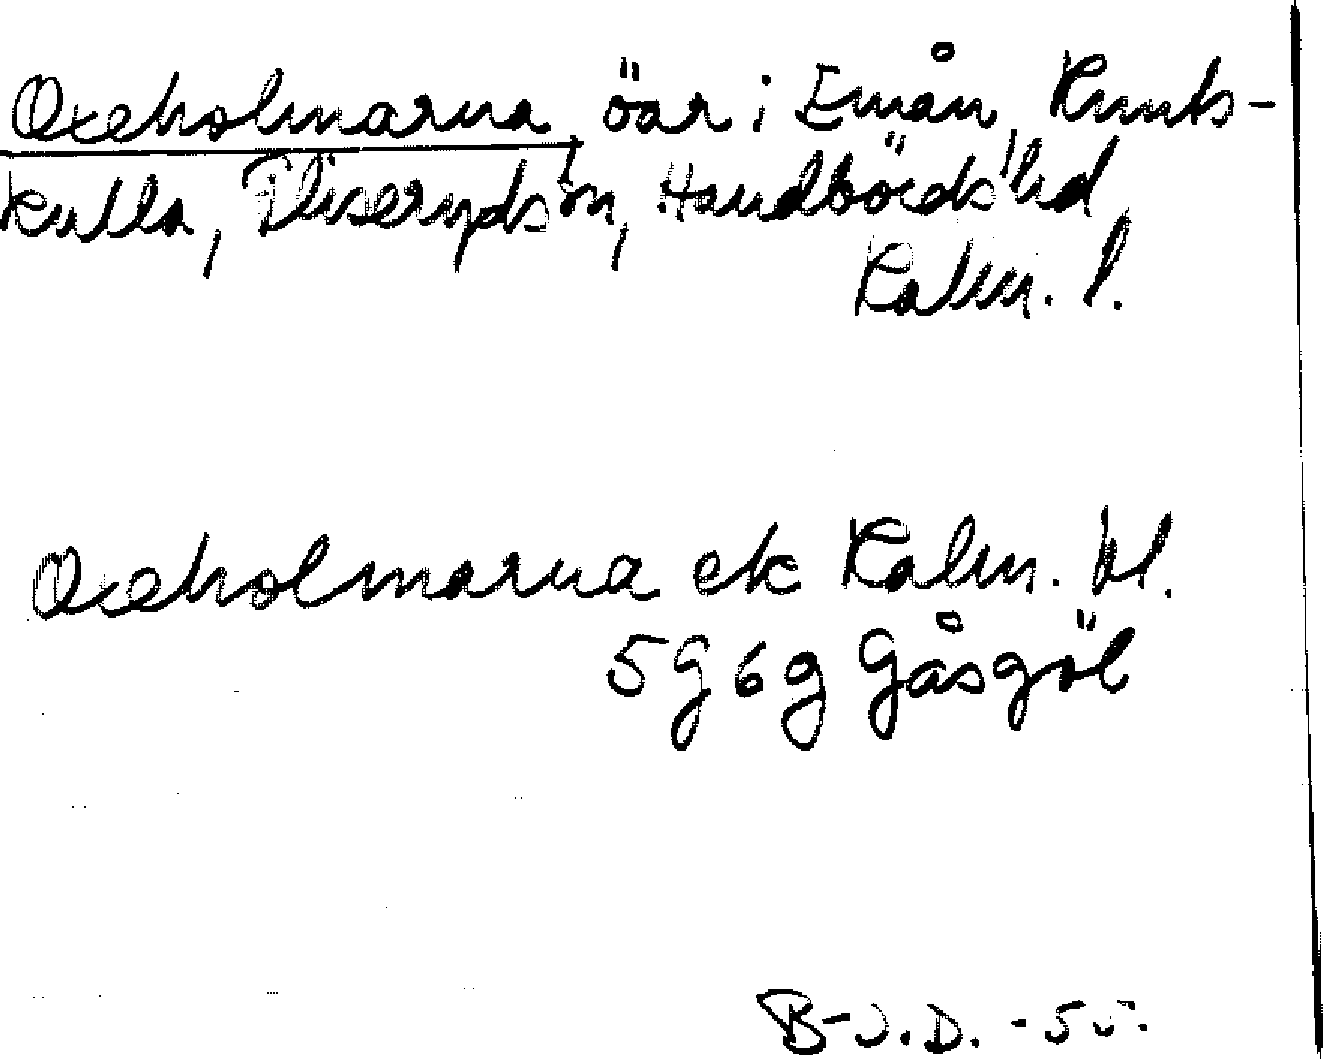 Oxeholmarna, öar i Emån, Knuts-
kulla, Fliseryds sn, Handbörds hd,
Kalm. l.
Oxeholmarna ek Kalm. bl.
5 G 6 g Gåsgöl
B-J.D. -55.